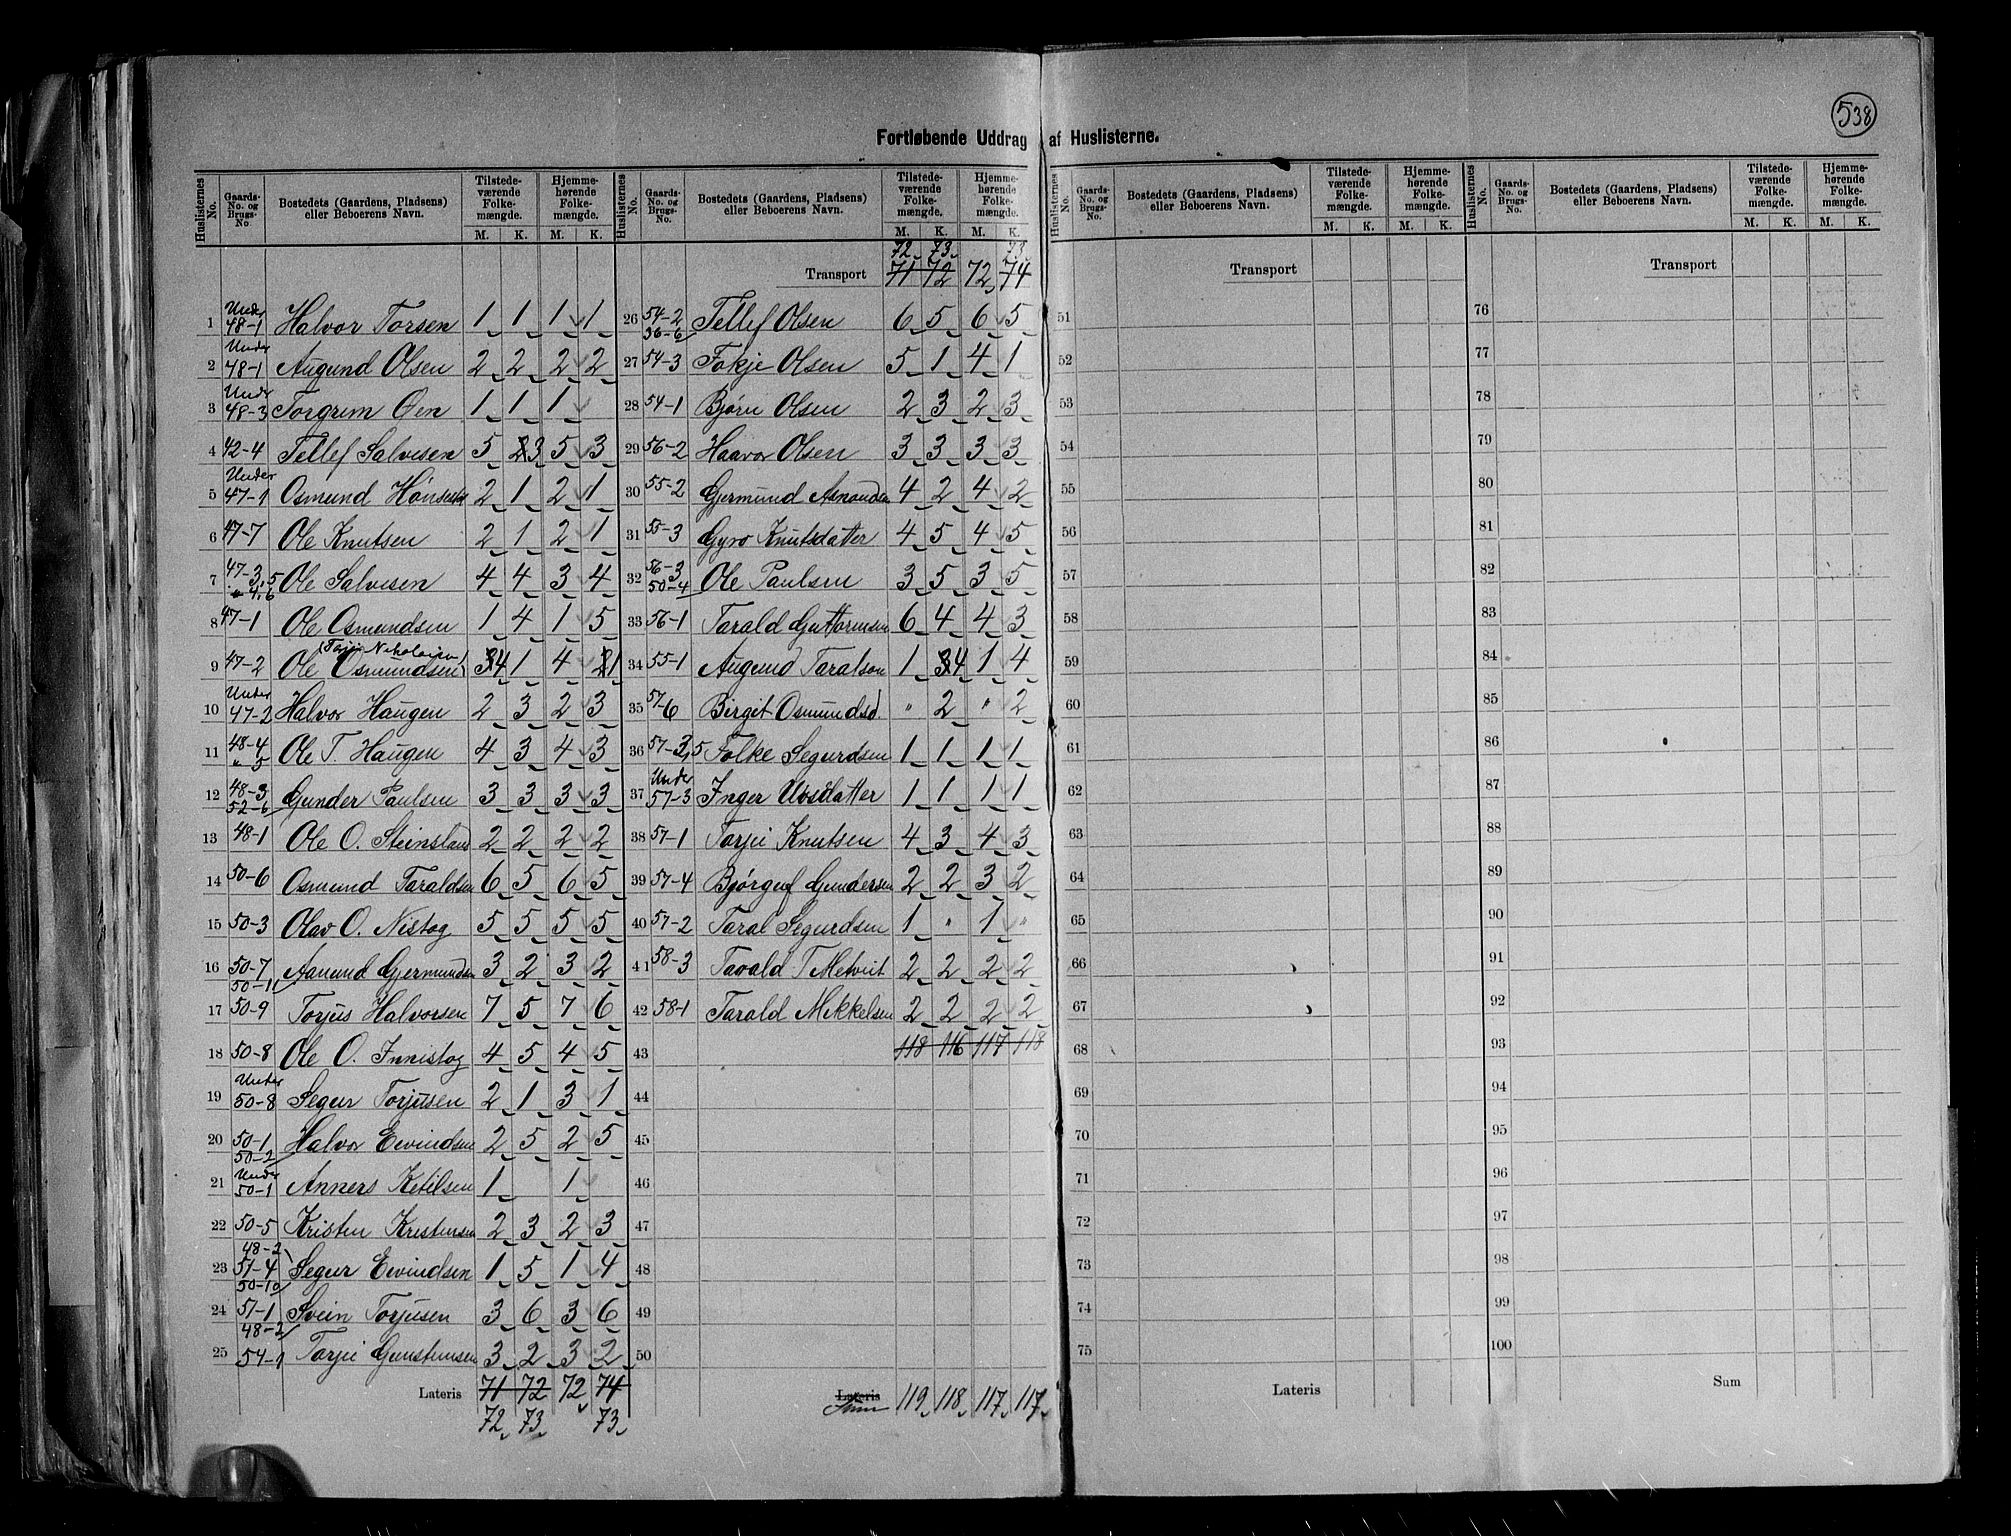 538
Fortløbende Uddrag af Huslisterne.
Huslisternes No. | Gaards-No. og Brugs-No. | Bostedets (Gaardens, Pladsens) eller Beboerens Navn. | Tilstedeværende Folkemængde. M. K. | Hjemmehørende Folkemængde. M. K.
1 Under 48-1 Halvor Torsen 1 1 1 1
2 Under 48-1 Augund Olsen 2 2 2 2
3 Under 48-3 Torgrim Øen 1 1 1
4 42-4 Tellef Salvesen 5 3 5 3
5 Under 47-1 Osmund 2 1 2 1
6 47-7 Ole Knutsen 2 1 2 1
7 47-3,5 " 4,6 Ole Salvesen 4 4 3 4
8 47-1 Ole Osmundsen 1 4 1 5
9 47-2 Ole Osmundsen (Torjei Nikolaisen) 4 1 4 1
10 Under 47-2 Halvor Haugen 2 3 2 3
11 48-4 " 5 Ole T. Haugen 4 3 4 3
12 48-3 52-6 Gunder Paulsen 3 3 3 3
13 48-1 Ole O. Steinsland 2 2 2 2
14 50-6 Osmund Taraldsen 6 5 6 5
15 50-3 Olav O. Nistog 5 5 5 5
16 50-7 50-11 Aanund Gjermundsen 3 2 3 2
17 50-9 Torjus Halvorsen 7 5 7 6
18 50-8 Ole O. Innistog 4 5 4 5
19 Under 50-8 Segur Torjusen 2 1 3 1
20 50-1 50-2 Halvor Eivindsen 2 5 2 5
21 Under 50-1 Anners Ketilsen 1 1
22 50-5 Kristen Kristensen 2 3 2 3
23 48-2 51-4 50-10 Segur Eivindsen 1 5 1 4
24 51-1 48-2 Svein Torjusen 3 6 3 6
25 54-1 Torjei Gunstensen 3 2 3 2
Lateris 71 72 72 74
72 73 73
Huslisternes No. | Gaards-No. og Brugs-No. | Bostedets (Gaardens, Pladsens) eller Beboerens Navn. | Tilstedeværende Folkemængde. M. K. | Hjemmehørende Folkemængde. M. K.
72 73 73
Transport 71 72 72 74
26 54-2 36-6 Tellef Olsen 6 5 6 5
27 54-3 Fokje Olsen 5 1 4 1
28 54-1 Bjørn Olsen 2 3 2 3
29 56-2 Haavor Olsen 3 3 3 3
30 55-2 Gjermund 4 2 4 2
31 55-3 Gyro Knutsdatter 4 5 4 5
32 56-3 50-4 Ole Paulsen 3 5 3 5
33 56-1 Tarald Guttormsen 6 4 4 3
34 55-1 Augund Taralson 1 4 1 4
35 57-6 Birgit Osmundsd. " 2 " 2
36 57-3,5 Folke Segurdsen 1 1 1 1
37 Under 57-3 Inger 1 1 1 1
38 57-1 Torjei Knutsen 4 3 4 3
39 57-4 Bjørguf Gundersen 2 2 3 2
40 57-2 Taral Segurdsen 1 " 1 "
41 58-3 Tarald T. 2 2 2 2
42 58-1 Tarald Mikkelsen 2 2 2 2
43 118 116 117 118
44
45
46
47
48
49
50
Lateris Sum 119 118 117 117
Huslisternes No. | Gaards-No. og Brugs-No. | Bostedets (Gaardens, Pladsens) eller Beboerens Navn. | Tilstedeværende Folkemængde. M. K. | Hjemmehørende Folkemængde. M. K.
Transport
51
52
53
54
55
56
57
58
59
60
61
62
63
64
65
66
67
68
69
70
71
72
73
74
75
Lateris
Huslisternes No. | Gaards-No. og Brugs-No. | Bostedets (Gaardens, Pladsens) eller Beboerens Navn. | Tilstedeværende Folkemængde. M. K. | Hjemmehørende Folkemængde. M. K.
Transport
76
77
78
79
80
81
82
83
84
85
86
87
88
89
90
91
92
93
94
95
96
97
98
99
100
Sum